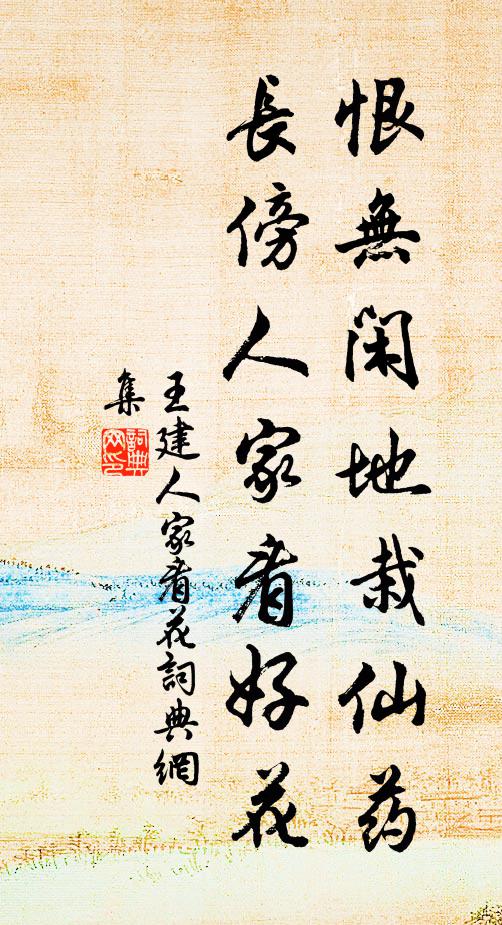 恨無閑地栽仙药
長傍人家看好花
王建人家看花詞典網
集
詞典
网印